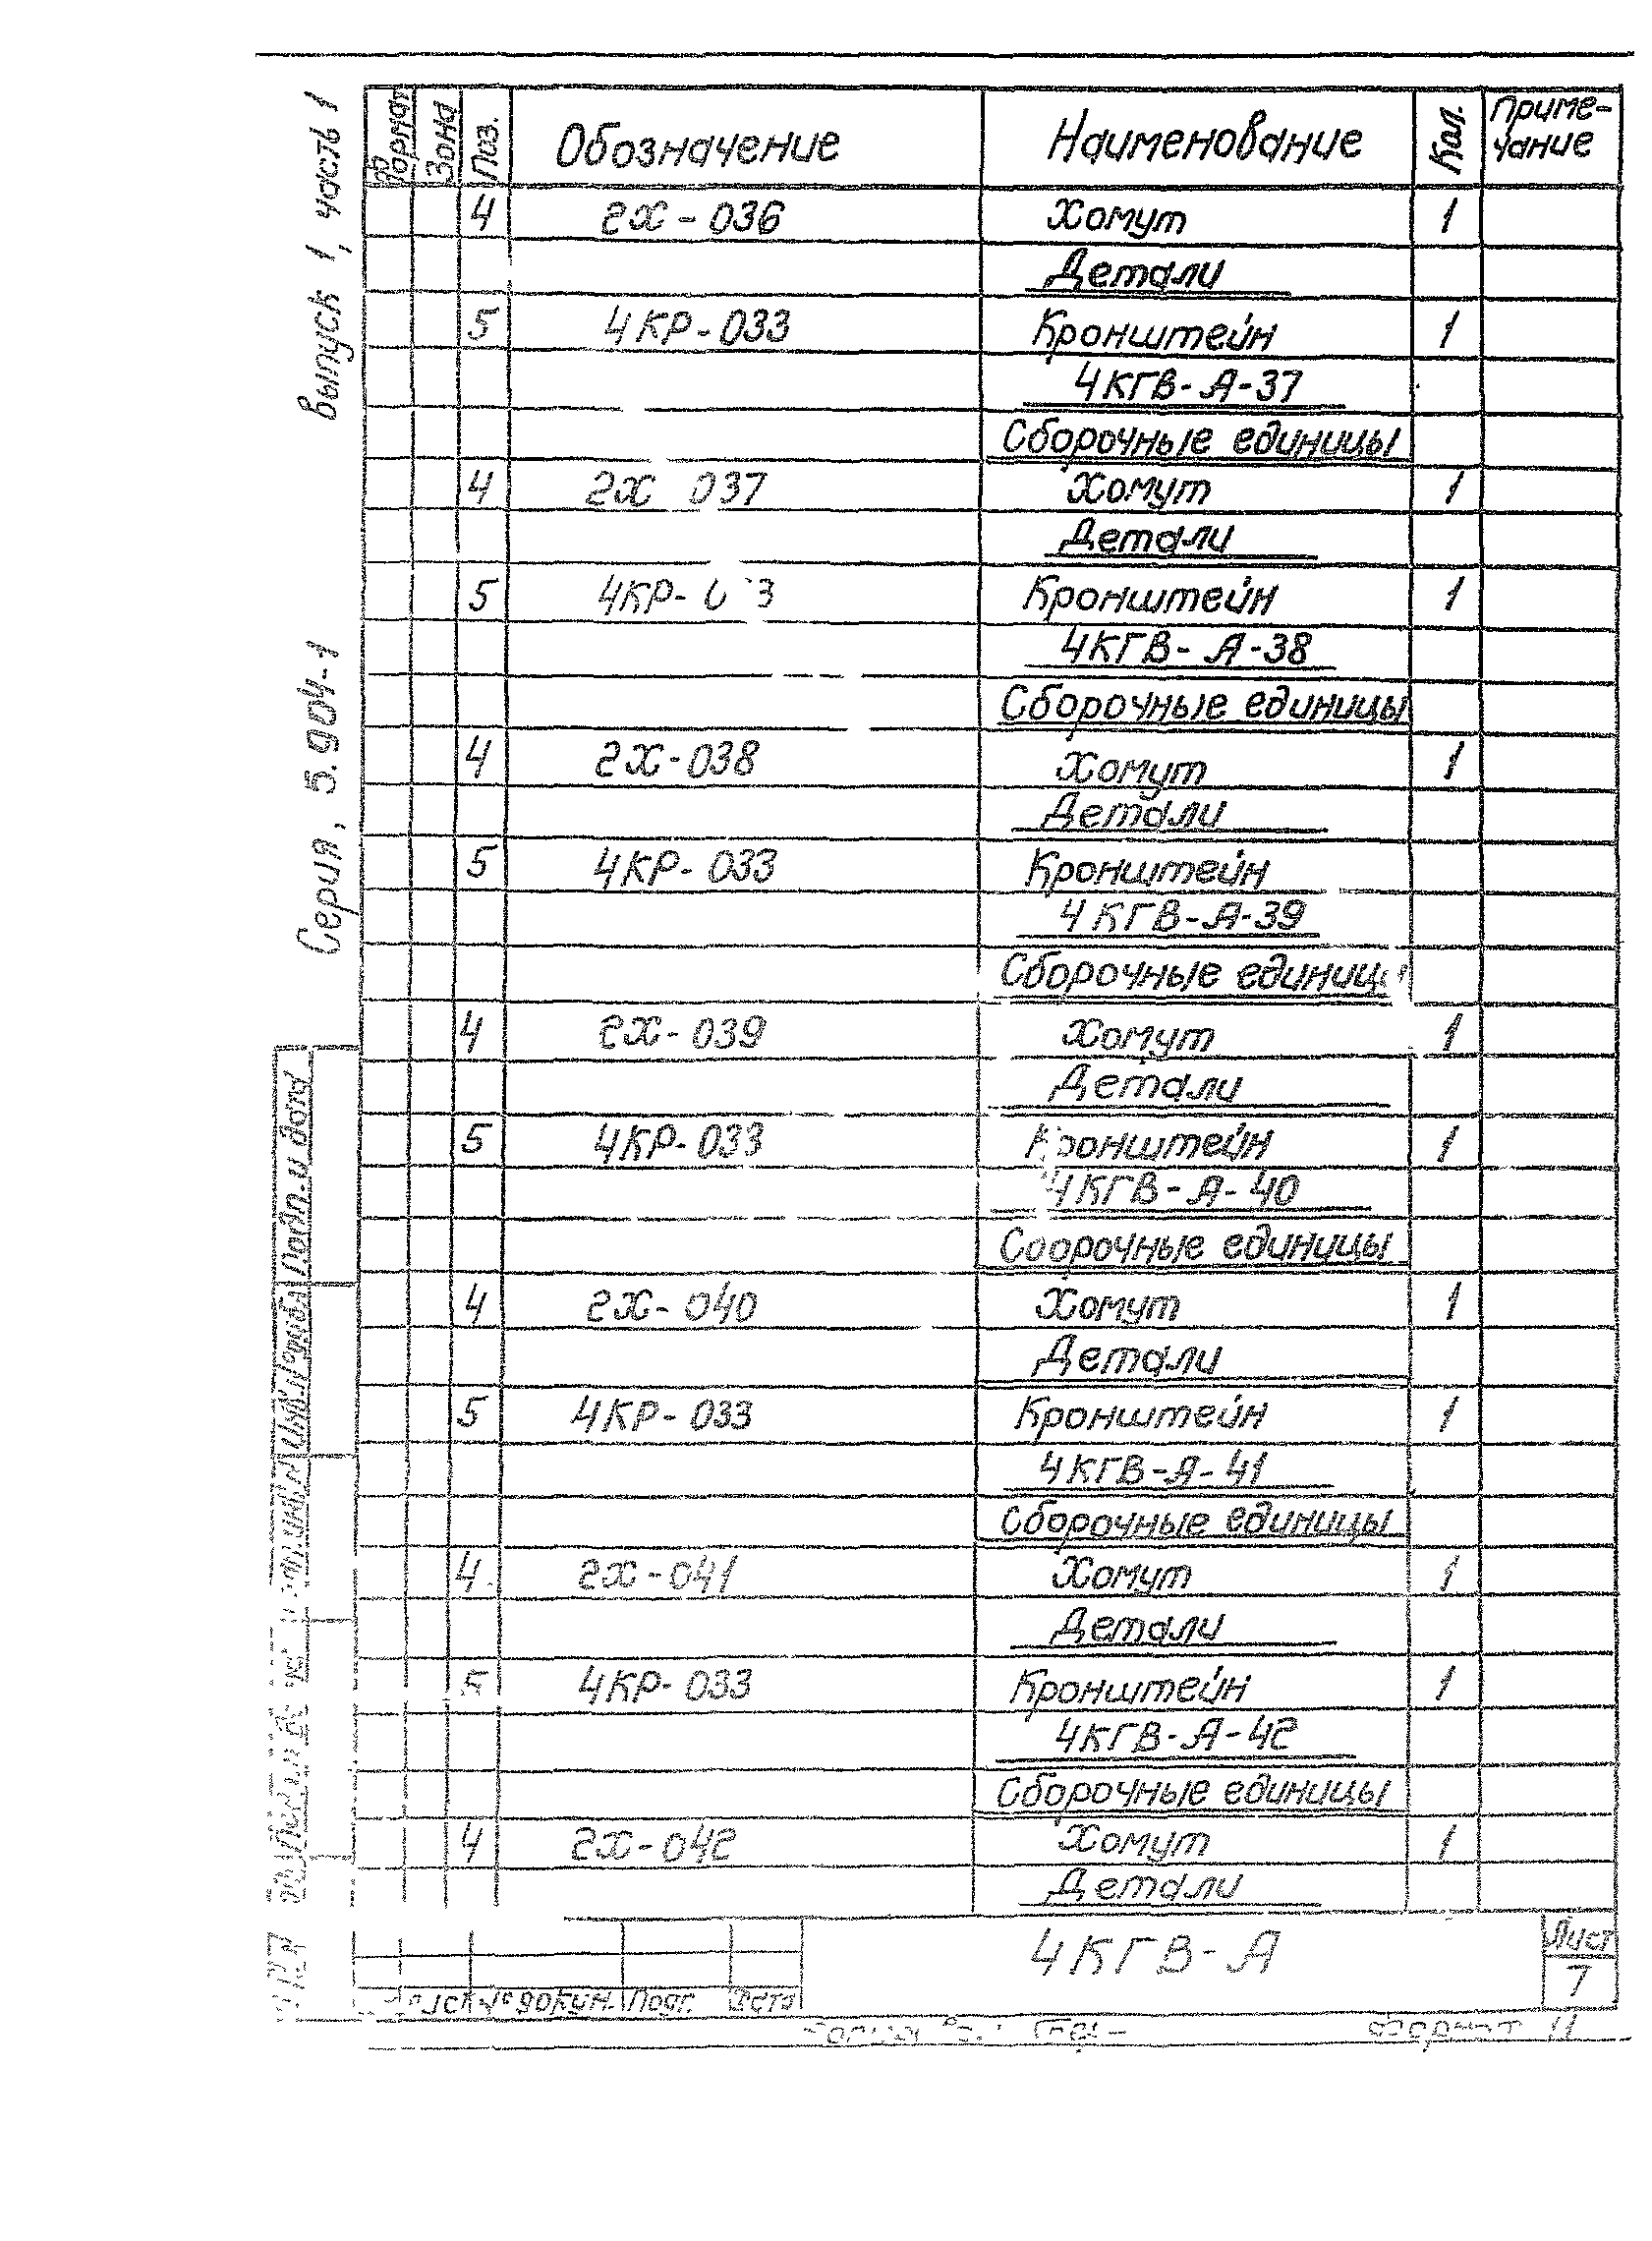 Серия, 5.904-1 Выпуск 1, часть 1
Формат Зона Поз. Обозначение Наименование Кол. Приме-
чание
4 2Х-036 Хомут 1
Детали
5 4КР-033 Кронштейн 1
4КГВ-А-37
Сборочные единицы
4 2Х 037 Хомут 1
Детали
5 4КР- Кронштейн 1
4КГВ-А-38
Сборочные единицы
4 2Х-038 Хомут 1
Детали
5 4КР-033 Кронштейн 1
4КГВ-А-39
Сборочные единицы
4 2Х-039 Хомут 1
Детали
5 4КР-033 Кронштейн 1
4КГВ-А-40
Сборочные единицы
4 2Х-040 Хомут 1
Детали
5 4КР-033 Кронштейн 1
4КГВ-А-41
Сборочные единицы
4 2Х-041 Хомут 1
Детали
5 4КР-033 Кронштейн 1
4КГВ-А-42
Сборочные единицы
4 2Х-042 Хомут 1
Детали
Подп. и дата
4КГВ-А
Лист
7
№ докум. Подп. Дата
Формат 11